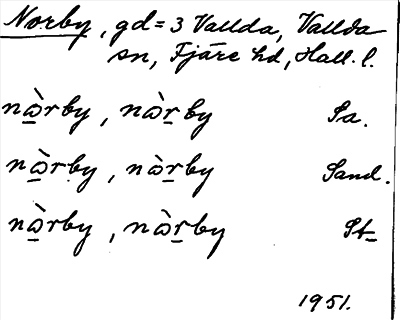 Norby, gd = 3 Vallda, Vallda
sn, Fjäre hd, Hall. l.
nὼ̲rby, nὼr̲by Sa.
nὼ̲rby, nὼr̲by Sand.
nὼ̲rby, nὼr̲by St
1951.